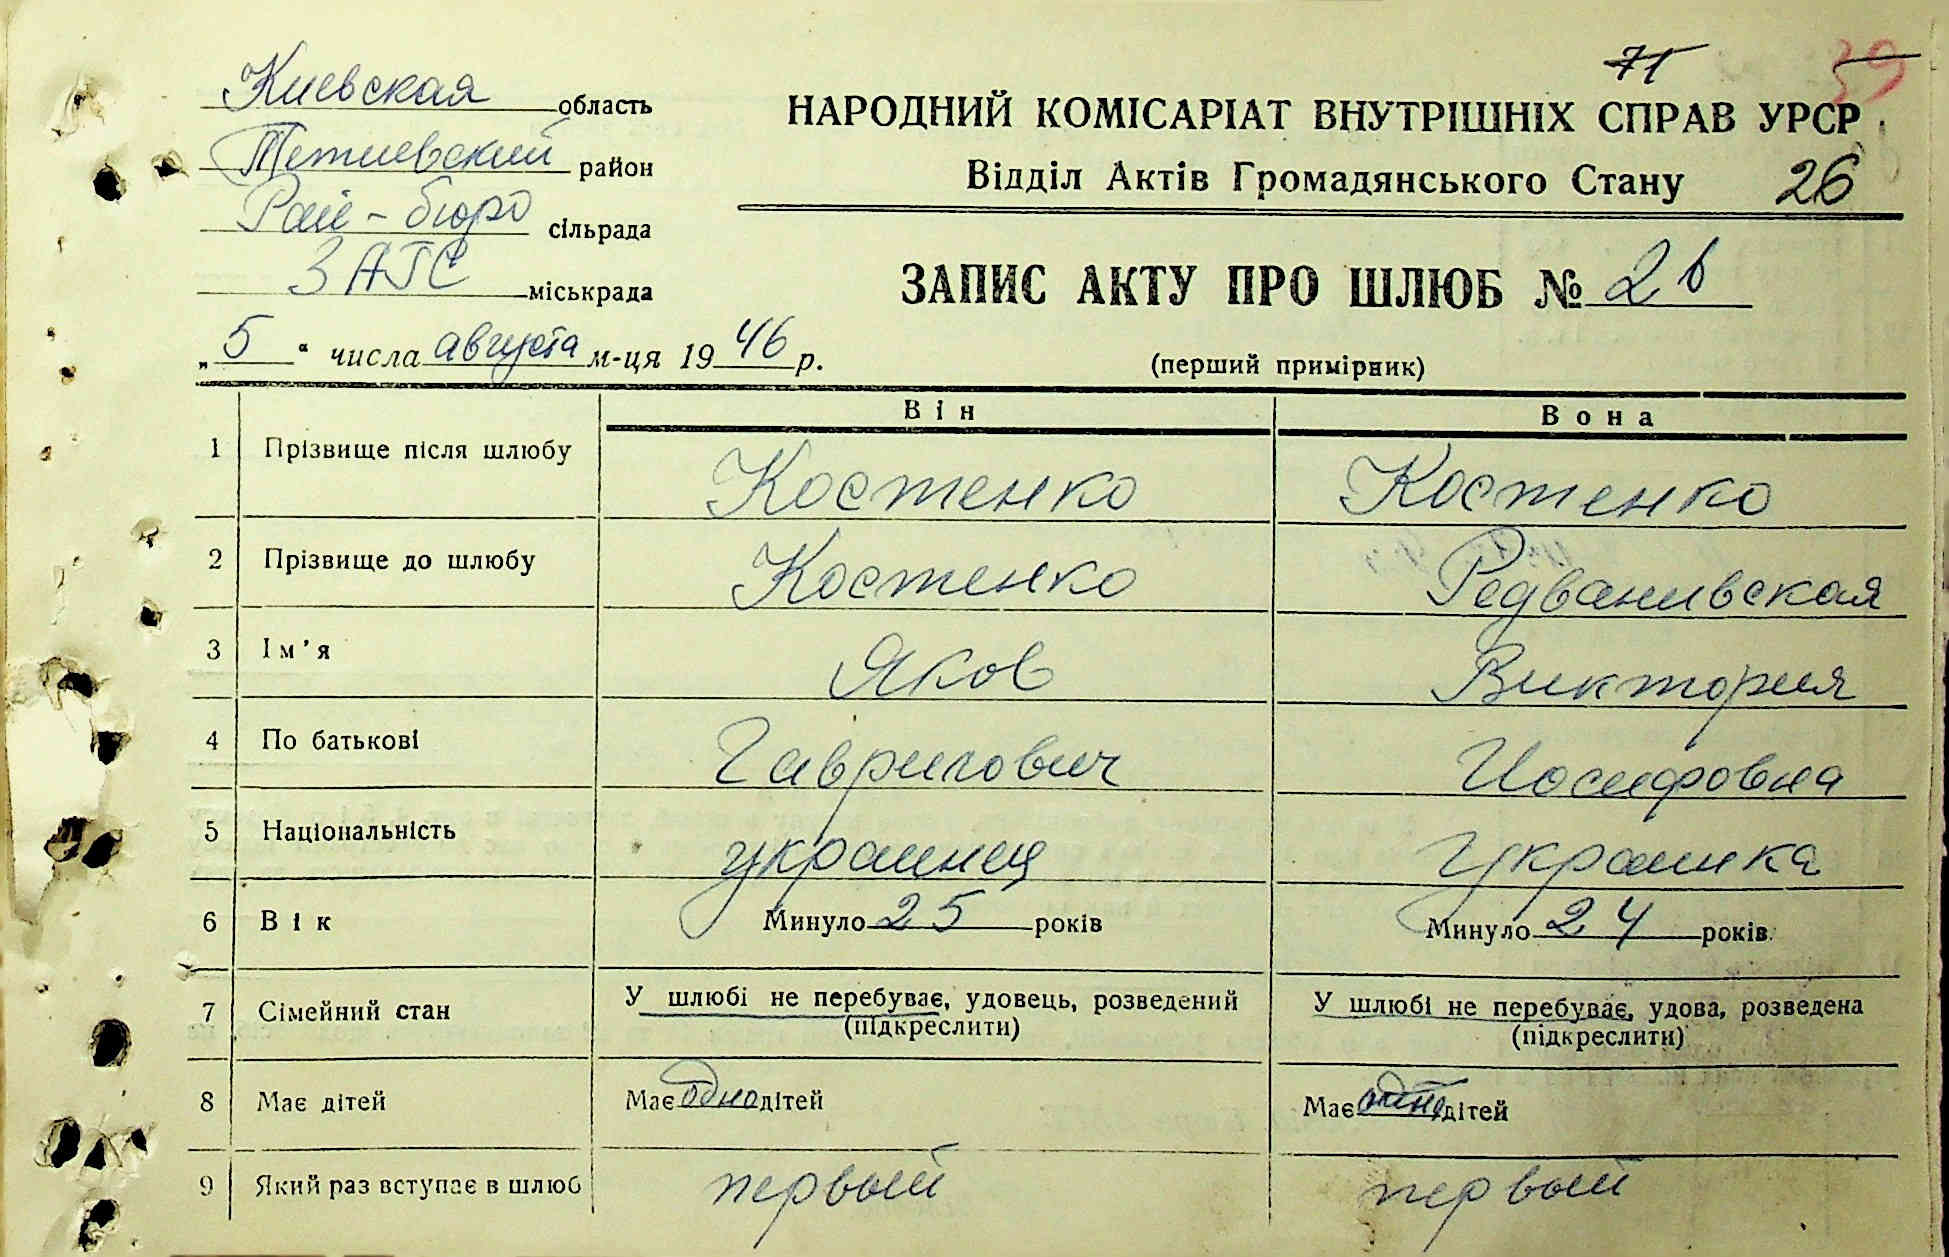 71 39
Киевская область
Тетиевский район
Рай-бюро сільрада
ЗАГС міськрада
„5“ числа августа м-ця 1946 р.
НАРОДНИЙ КОМІСАРІАТ ВНУТРІШНІХ СПРАВ УРСР
Відділ Актів Громадянського Стану 26
ЗАПИС АКТУ ПРО ШЛЮБ № 26
(перший примірник)
Він Вона
1 Прізвище після шлюбу Костенко Костенко
2 Прізвище до шлюбу Костенко Редванивская
3 Ім'я Яков Виктория
4 По батькові Гаврилович Иосифовна
5 Національність украинец украинка
6 Вік Минуло 25 років Минуло 24 років.
7 Сімейний стан У шлюбі не перебуває, удовець, розведений У шлюбі не перебуває, удова, розведена
(підкреслити) (підкреслити)
8 Має дітей Має одно дітей Має дітей
9 Який раз вступає в шлюб первый первый